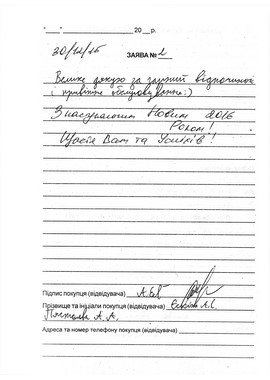 "___" ____________ 20 __ р.
30/12/15
ЗАЯВА № 2
Велике дякую за гарний відпочинок
і привітне обслуговування:)
З наступаючим Новим 2016
Роком!
Щастя Вам та Успіхів!
Підпис покупця (відвідувача)
Прізвище та ініціали покупця (відвідувача)
А. А.
Адреса та номер телефону покупця (відвідувача)